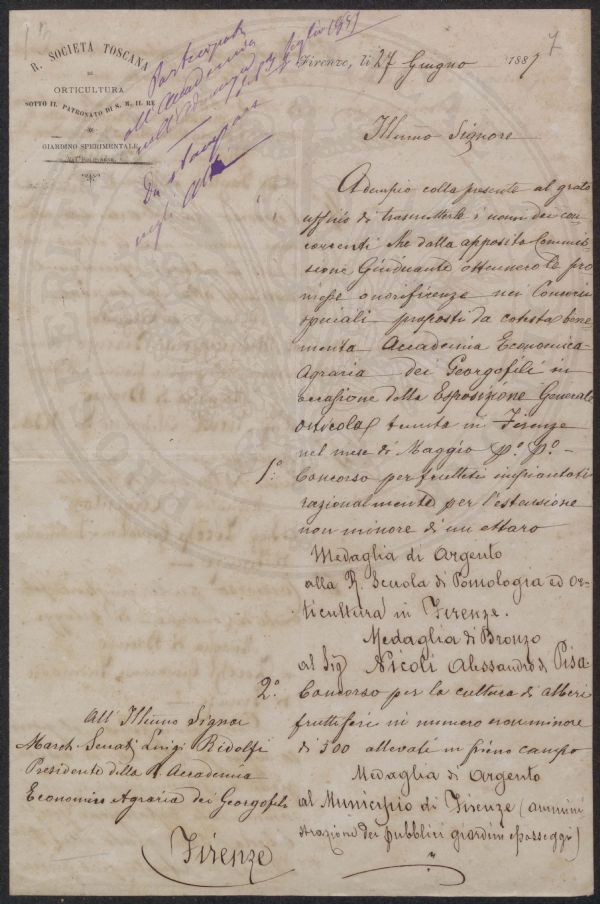 7
R. SOCIETÀ TOSCANA
DI
ORTICULTURA
SOTTO IL PATRONATO DI S. M. IL RE
GIARDINO SPERIMENTALE
Partecipato
all'Accademia
nell'Adunanza
del 3 Luglio 1887
Da stamparsi
negli Atti
Firenze, li 27 Giugno 1887
Illmo Signore
Adempio colla presente al grato
ufficio di trasmetterle i nomi dei con-
correnti che dalla apposita Commis-
sione Giudicante ottennero le pro-
messe onorificenze nei Concorsi
speciali proposti da cotesta bene-
merita Accademia Economica
Agraria dei Georgofili in
occasione della Esposizione Generale
orticola tenuta in Firenze
nel mese di Maggio p.o p.o
1.o Concorso per frutteti impiantati
razionalmente per l'estensione
non minore di un ettaro
Medaglia di Argento
alla R. Scuola di Pomologia ed Or-
ticultura in Firenze.
Medaglia di Bronzo
al Sig Nicoli Alessandro, Pisa
2.o Concorso per la cultura di alberi
fruttiferi in numero non minore
di 300 allevati in pieno campo
Medaglia di Argento
al Municipio di Firenze (ammini
strazione dei pubblici giardini e passeggi)
All' Illmo Signor
March. Senat. Luigi Ridolfi
Presidente della R. Accademia
Economico Agraria dei Georgofili
Firenze